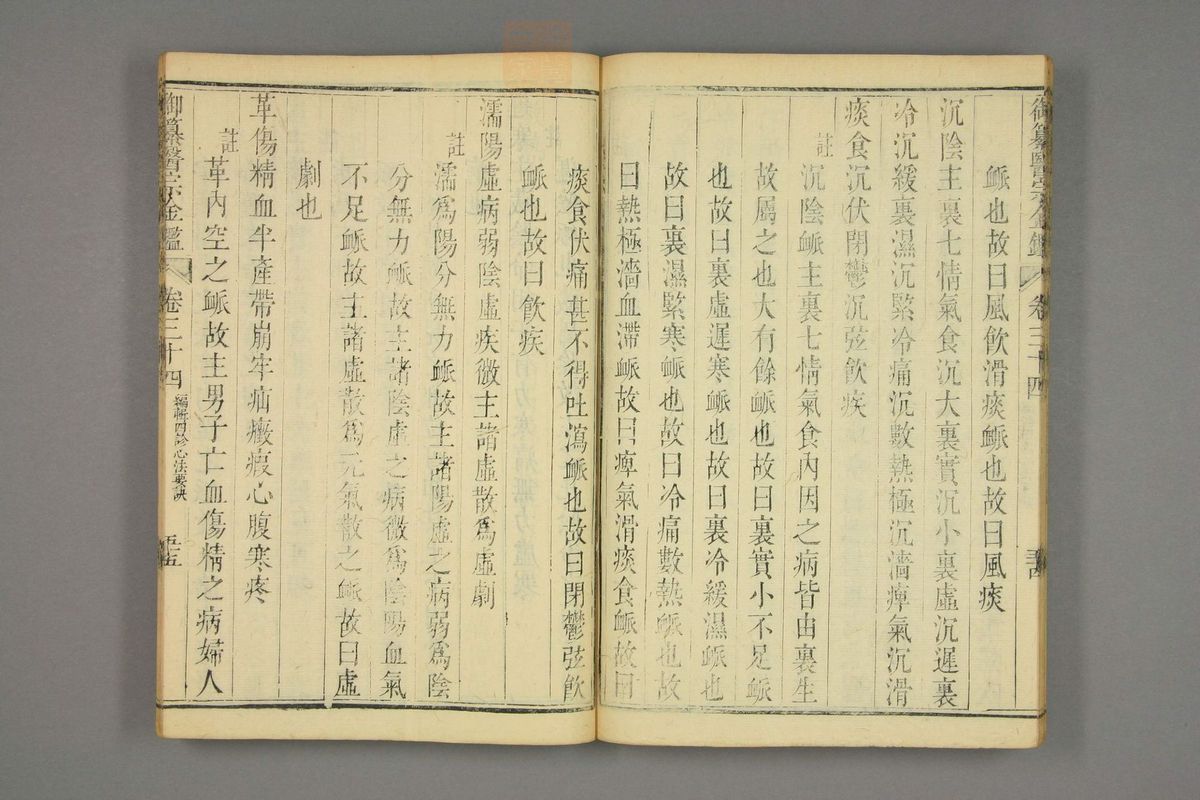 御纂醫宗金鑑 卷三十四 五十四
䘑也故曰風飲滑痰䘑也故曰風痰
沉陰主裏七情氣食沉大裏實沉小裏虛沉遲裏
冷沉緩裏濕沉緊冷痛沉數熱極沉濇痺氣沉滑
痰食沉伏閉鬱沉弦飲疾
註 沉陰䘑主裏七情氣食內因之病皆由裏生
故屬之也大有餘䘑也故曰裏實小不足䘑
也故曰裏虛遲寒䘑也故曰裏冷緩濕䘑也
故曰裏濕緊寒䘑也故曰冷痛數熱䘑也故
曰熱極濇血滯䘑故曰痺氣滑痰食䘑故曰
痰食伏痛甚不得吐瀉䘑也故曰閉鬱弦飲
䘑也故曰飲疾
濡陽虛病弱陰虛疾微主諸虛散爲虛劇
註 濡爲陽分無力䘑故主諸陽虛之病弱爲陰
分無力䘑故主諸陰虛之病微爲陰陽血氣
不足䘑故主諸虛散爲元氣散之䘑故曰虛
劇也
革傷精血半產帶崩牢疝癥瘕心腹寒疼
註 革內空之䘑故主男子亡血傷精之病婦人
御纂醫宗金鑑 卷三十四 編輯四診心法要訣 五十五